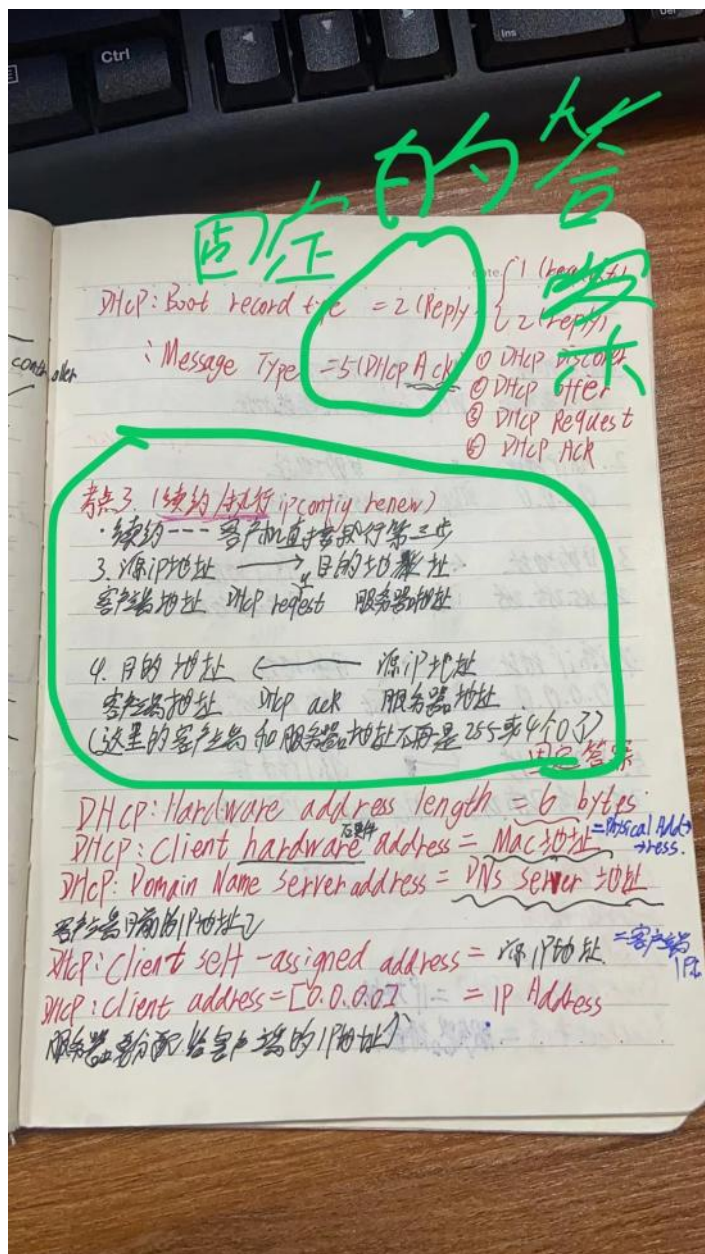 Ctrl
Ins
Del
固定的答案
date.
DHCP: Boot record type = 2 (Reply)
{ 1 (request)
2 (reply)
: Message Type = 5 (DHCP Ack)
① DHCP Discover
② DHCP offer
③ DHCP Request
④ DHCP Ack
考点3. (续约/执行 ipconfig renew)
· 续约---客户机直接执行第三步
3. 源ip地址 → 目的地址
客户端地址 DHCP reqest 服务器地址
4. 目的地址 ← 源ip地址
客户端地址 DHCP ack 服务器地址
(这里的客户端和服务器地址不再是255或4个0了)
固定答案
DHCP: Hardware address length = 6 bytes
DHCP: Client hardware address = Mac地址 = Physical Address.
DHCP: Domain Name Server address = DNS server 地址
客户端目前的IP地址
DHCP: Client self-assigned address = 源IP地址 = 客户端IP
DHCP: Client address = [0.0.0.0] = IP Address
服务器要分配给客户端的IP地址